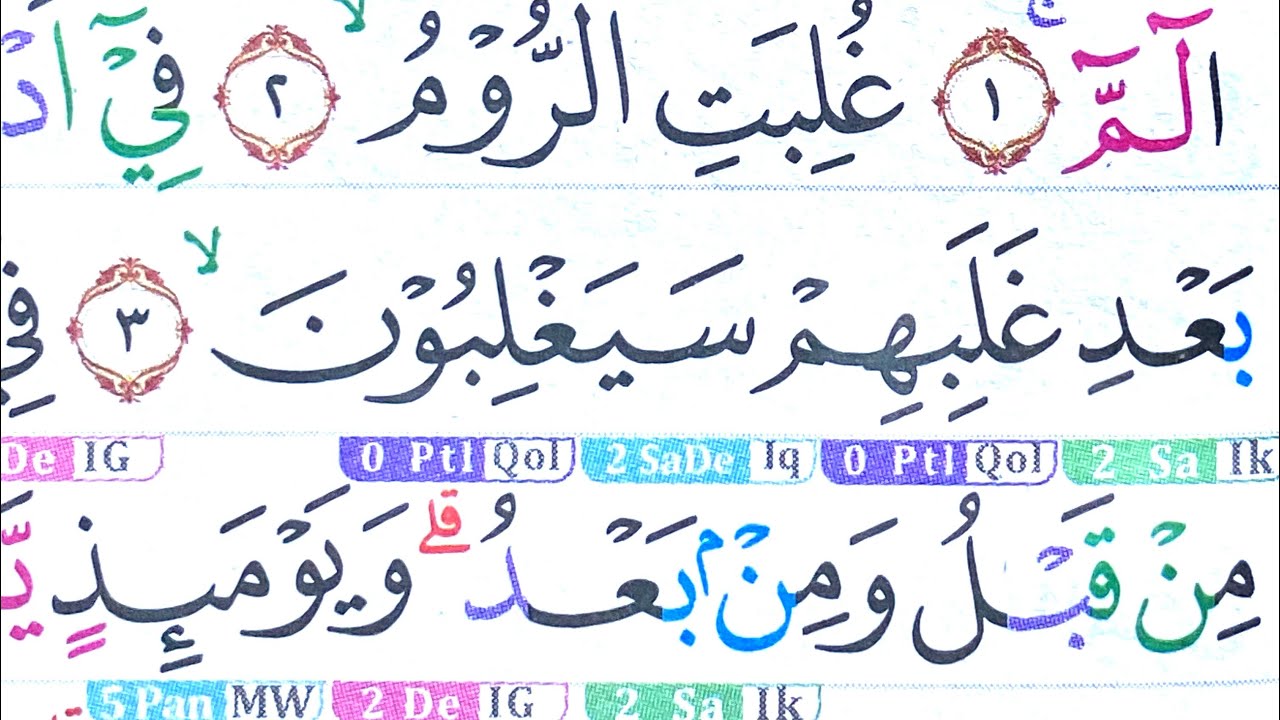 الٓمّٓ ١ غُلِبَتِ الرُّوْمُۙ ٢ فِيْٓ
بَعْدِ غَلَبِهِمْ سَيَغْلِبُوْنَۙ ٣ فِيْ
De IG 0 Ptl Qol 2 SaDe Iq 0 Ptl Qol 2 Sa Ik
مِنْ قَبْلُ وَمِنْۢ بَعْدُۗ وَيَوْمَىِٕذٍ
5 Pan MW 2 De IG 2 Sa Ik